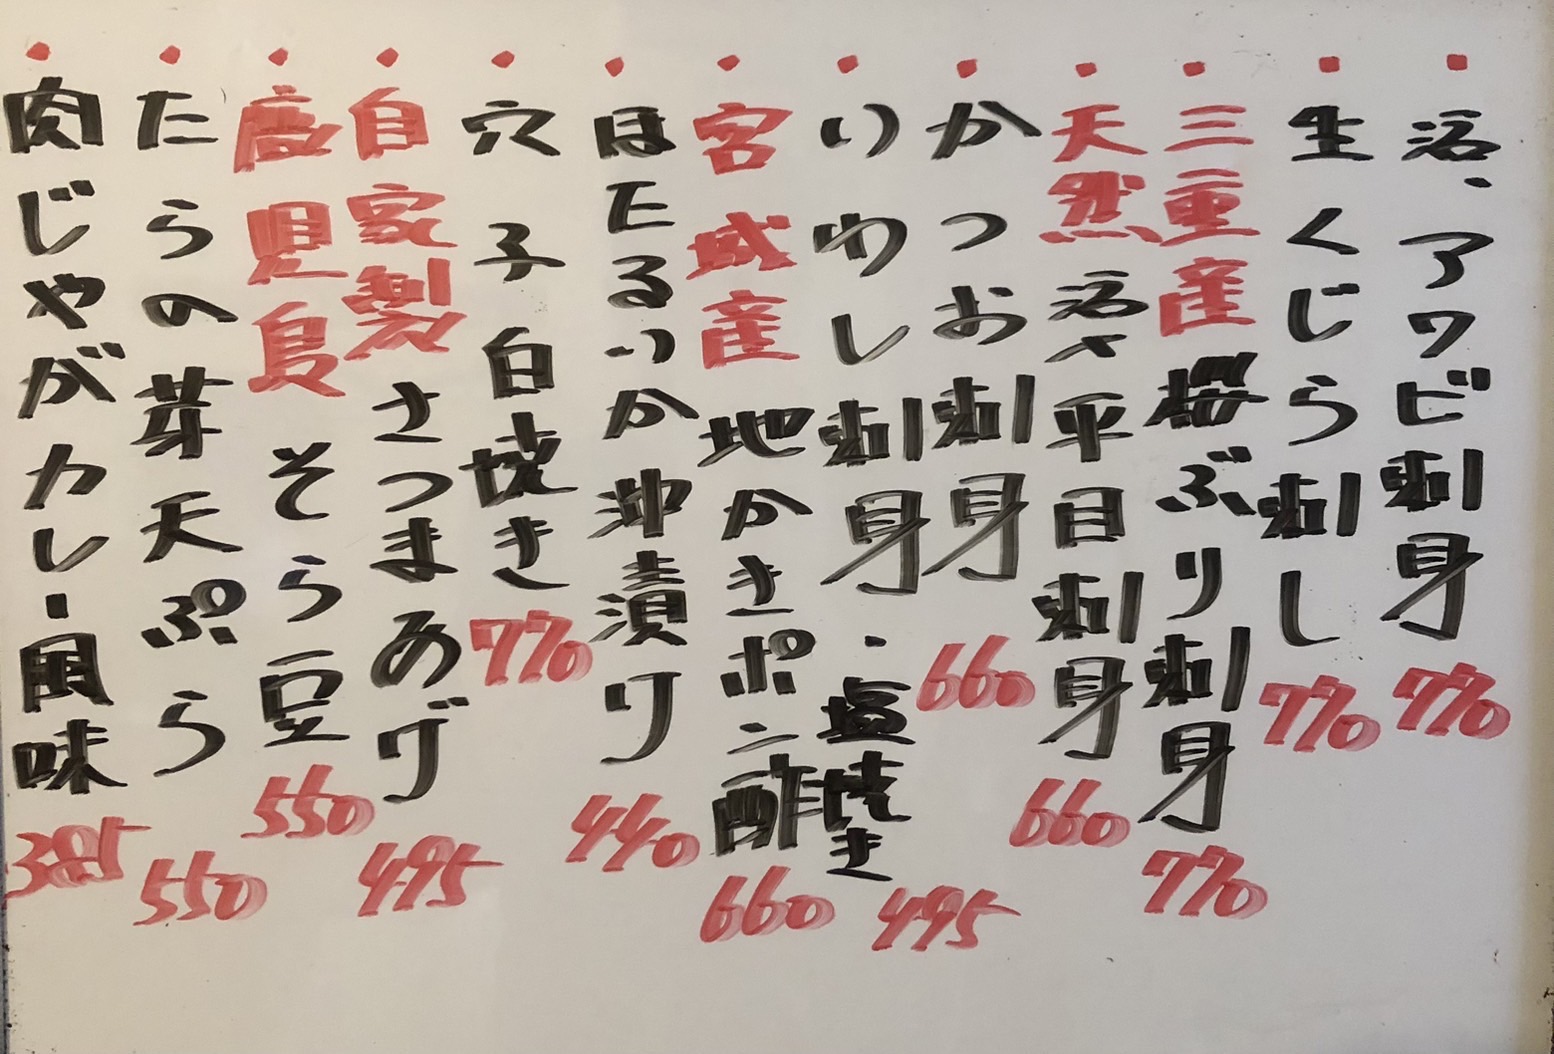 ・活、アワビ刺身 770
・生くじら刺し 770
・三重産 桜ぶり刺身 770
・天然 活〆平目刺身 660
・かつお刺身 660
・いわし刺身・塩焼き 495
・宮城産 地かきポン酢 660
・ほたるいか沖漬け 440
・穴子白焼き 770
・自家製 さつまあげ 495
・鹿児島 そら豆 550
・たらの芽天ぷら 550
・肉じゃがカレー風味 385